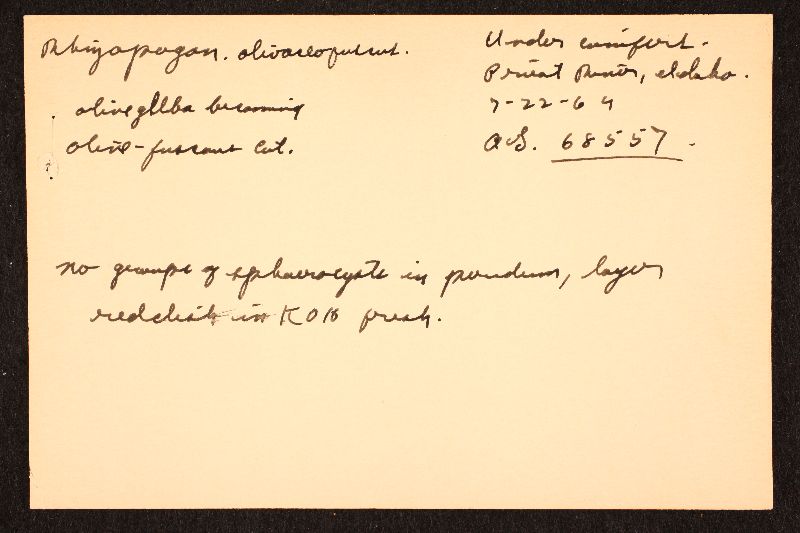 Rhizopogon. olivaceofuscus.
Under conifers.
Priest River, Idaho.
olive gleba becoming
7-22-64
olive-fuscous cut.
AS. 68557
no groups of sphaerocysts in peridium, layer
reddish in KOH fresh.